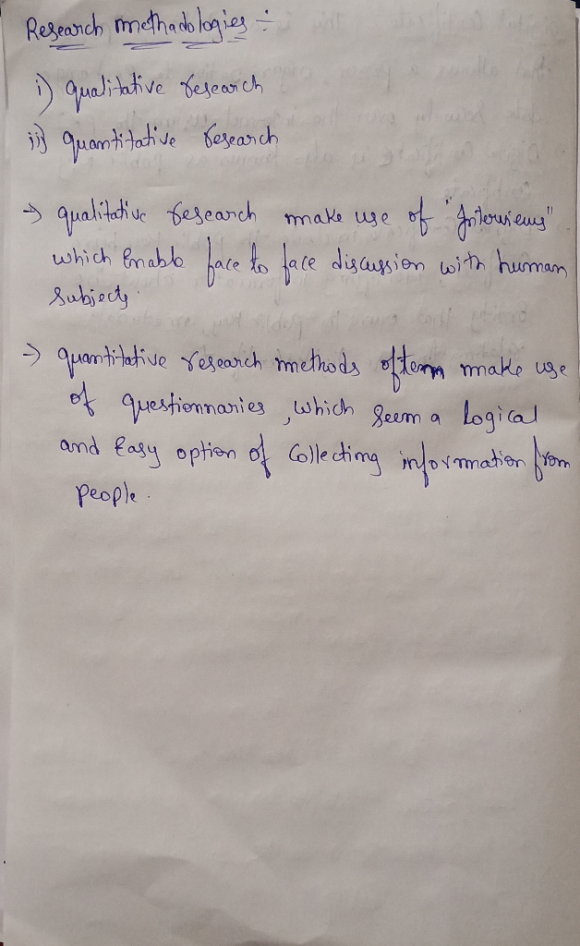 Research methadologies :-
i) qualitative research
ii) quantitative research
→ qualitative research make use of "Interviews"
which Enable face to face discussion with human
Subjects.
→ quantitative research methods often make use
of questionnaries, which seem a Logical
and Easy option of Collecting information from
people.